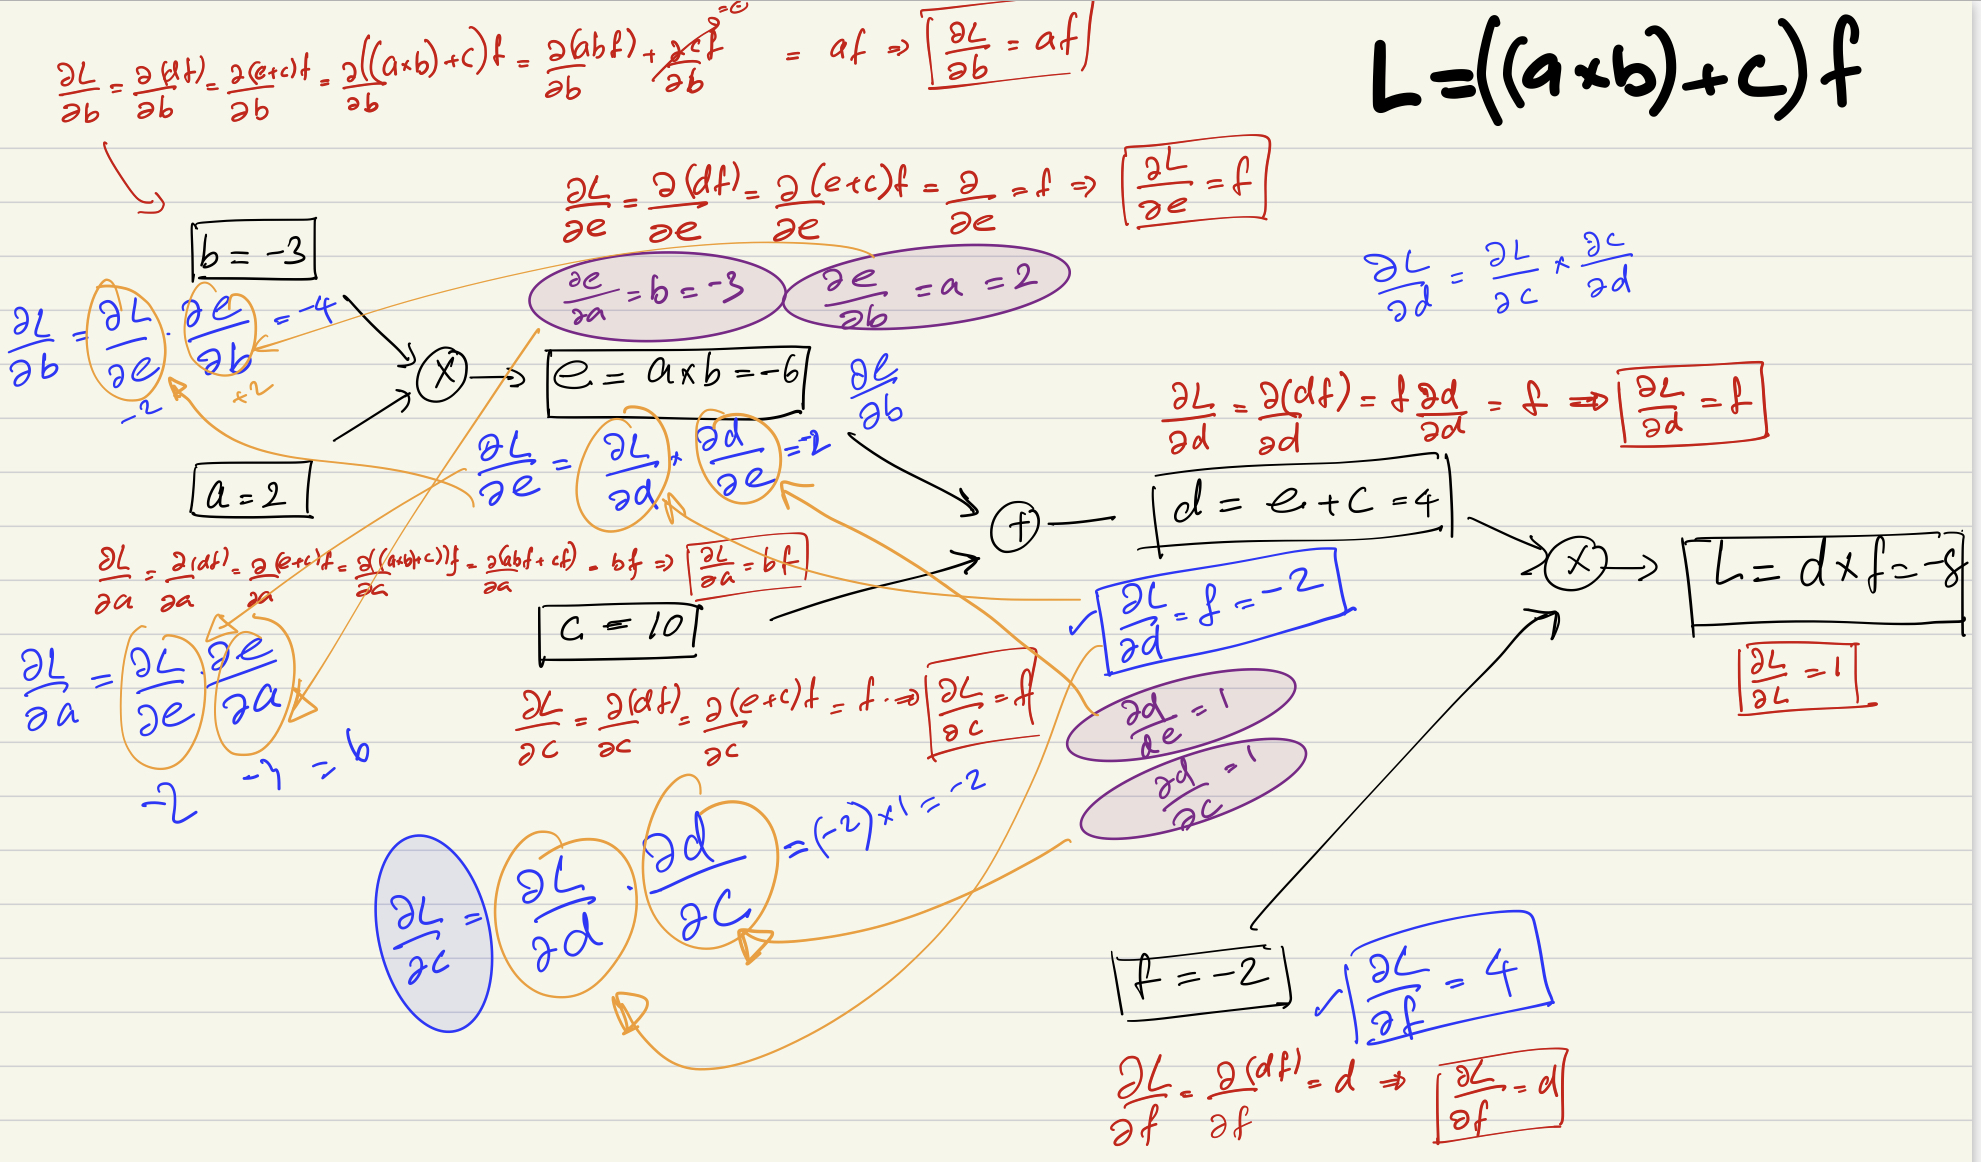 ∂L/∂b = ∂(df)/∂b = ∂(e+c)f/∂b = ∂((a×b)+c)f/∂b = ∂(abf)/∂b + ∂cf/∂b =0 = af ⇒ ∂L/∂b = af
L=((a×b)+c)f
∂L/∂e = ∂(df)/∂e = ∂(e+c)f/∂e = ∂/∂e = f ⇒ ∂L/∂e = f
b = -3
∂e/∂a = b = -3
∂e/∂b = a = 2
∂L/∂d = ∂L/∂c × ∂c/∂d
∂L/∂b = ∂L/∂e · ∂e/∂b = -4
-2 +2
X
e = a×b = -6
∂e/∂b
∂L/∂d = ∂(df)/∂d = f ∂d/∂d = f ⇒ ∂L/∂d = f
a = 2
∂L/∂e = ∂L/∂d × ∂d/∂e = -2
+
d = e + c = 4
X
L = d × f = -8
∂L/∂L = 1
∂L/∂a = ∂(df)/∂a = ∂(e+c)f/∂a = ∂((a×b)+c))f/∂a = ∂(abf + cf)/∂a = bf ⇒ ∂L/∂a = bf
c = 10
∂L/∂d = f = -2
∂L/∂a = ∂L/∂e · ∂e/∂a
-2 -3 = 6
∂L/∂c = ∂(df)/∂c = ∂(e+c)f/∂c = f ⇒ ∂L/∂c = f
∂d/∂e = 1
∂d/∂c = 1
∂L/∂c = ∂L/∂d · ∂d/∂c = (-2)×1 = -2
f = -2
∂L/∂f = 4
∂L/∂f = ∂(df)/∂f = d ⇒ ∂L/∂f = d